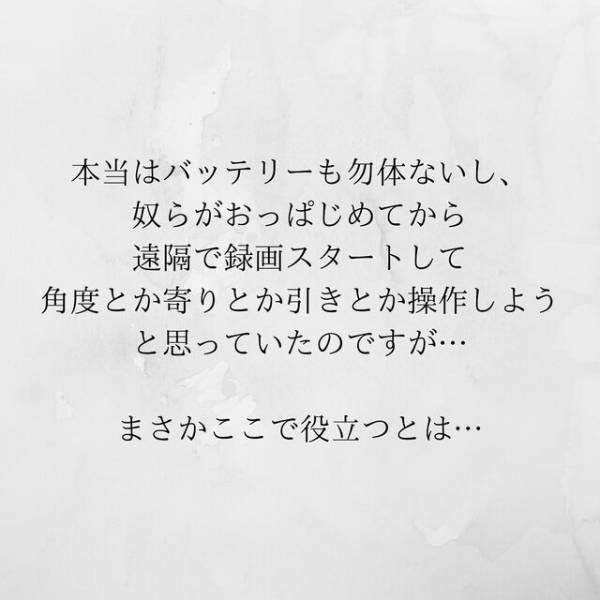 本当はバッテリーも勿体ないし、
奴らがおっぱじめてから
遠隔で録画スタートして
角度とか寄りとか引きとか操作しよう
と思っていたのですが…
まさかここで役立つとは…